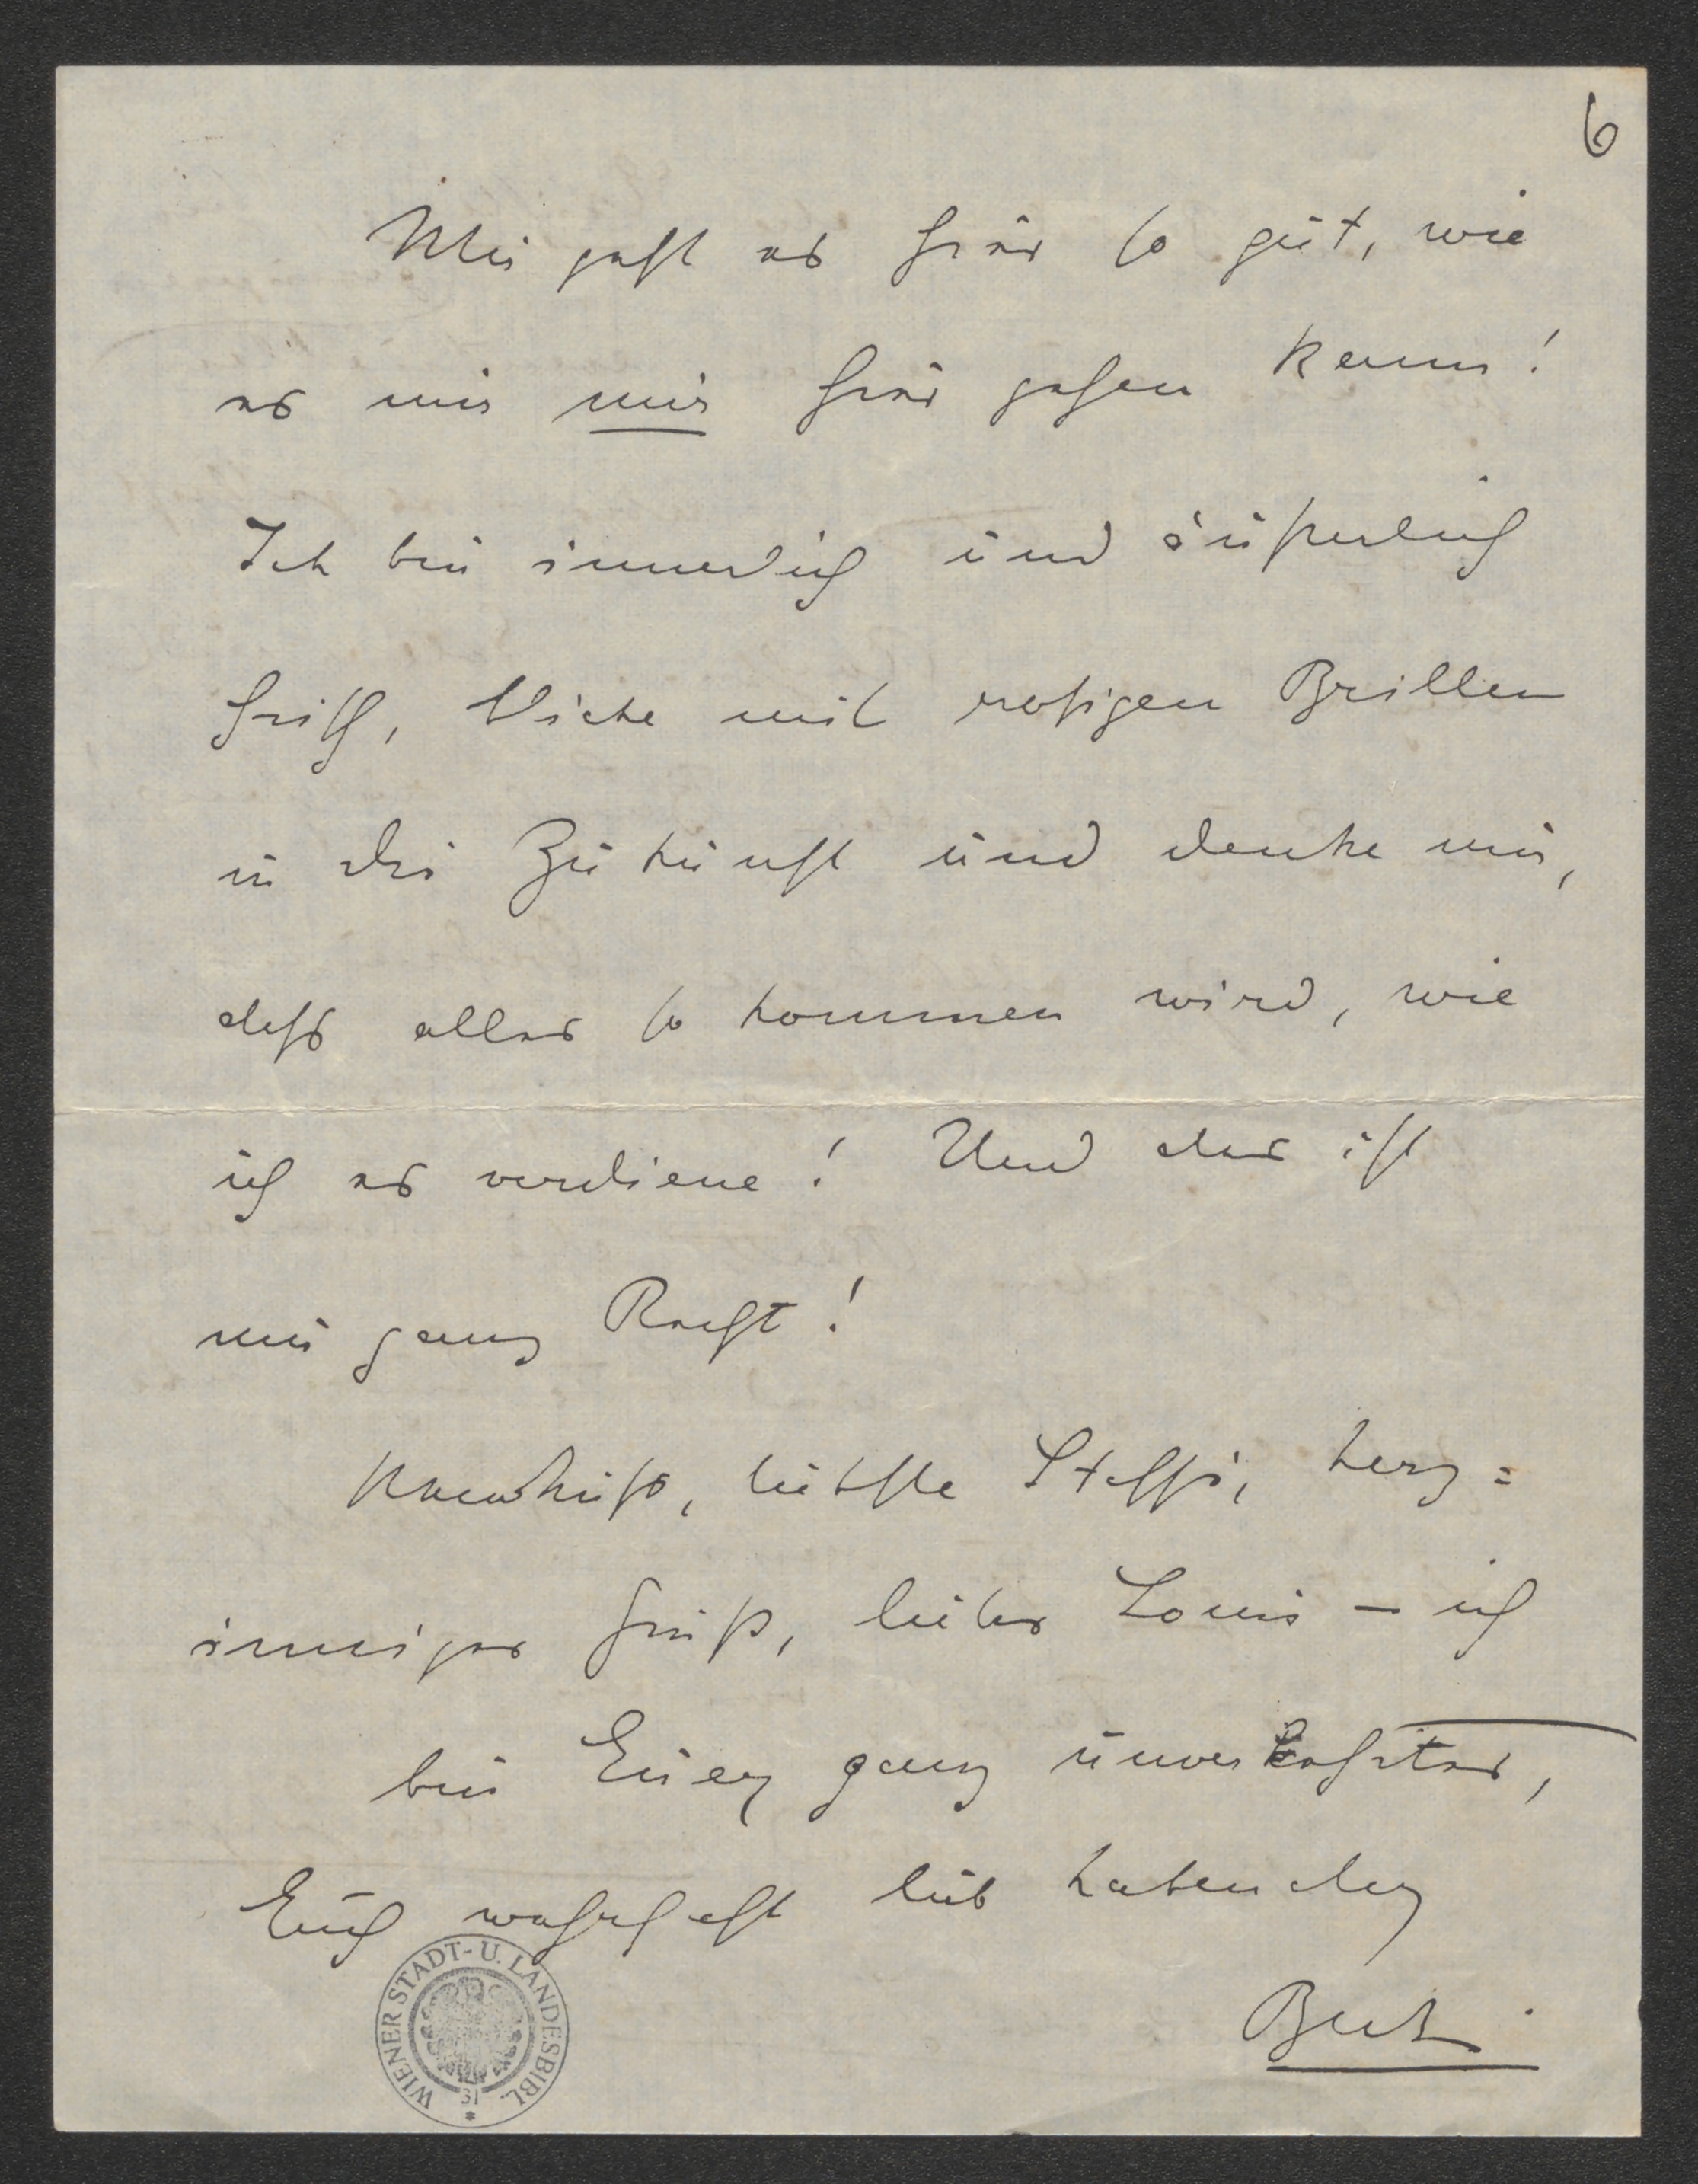 6
Mir geht es hier so gut, wie
es mir nur hier gehen kann!
Ich bin innerlich und äußerlich
frisch, blicke mit rosigen Brillen
in die Zukunft und denke mir,
dass alles so kommen wird, wie
ich es verdiene! Und das ist
nur ganz Recht!
liebste Steffi, herz=
inniger Gruß, lieber Louis – ich
bin Euer ganz unverkehrter,
Euch wahrhaft lieb habender
WIENER STADT- U. LANDESBIBL.
31